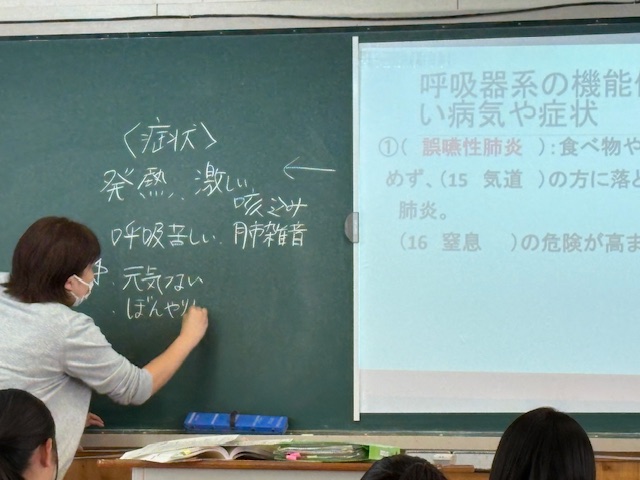 〈症状〉
発熱、激しい
咳込み
呼吸苦しい、肺雑音
・元気ない
・ぼんやり
呼吸器系の機能
い病気や症状
①( 誤嚥性肺炎 ):食べ物や
めず、(15 気道 )の方に落と
肺炎。
(16 窒息 )の危険が高ま